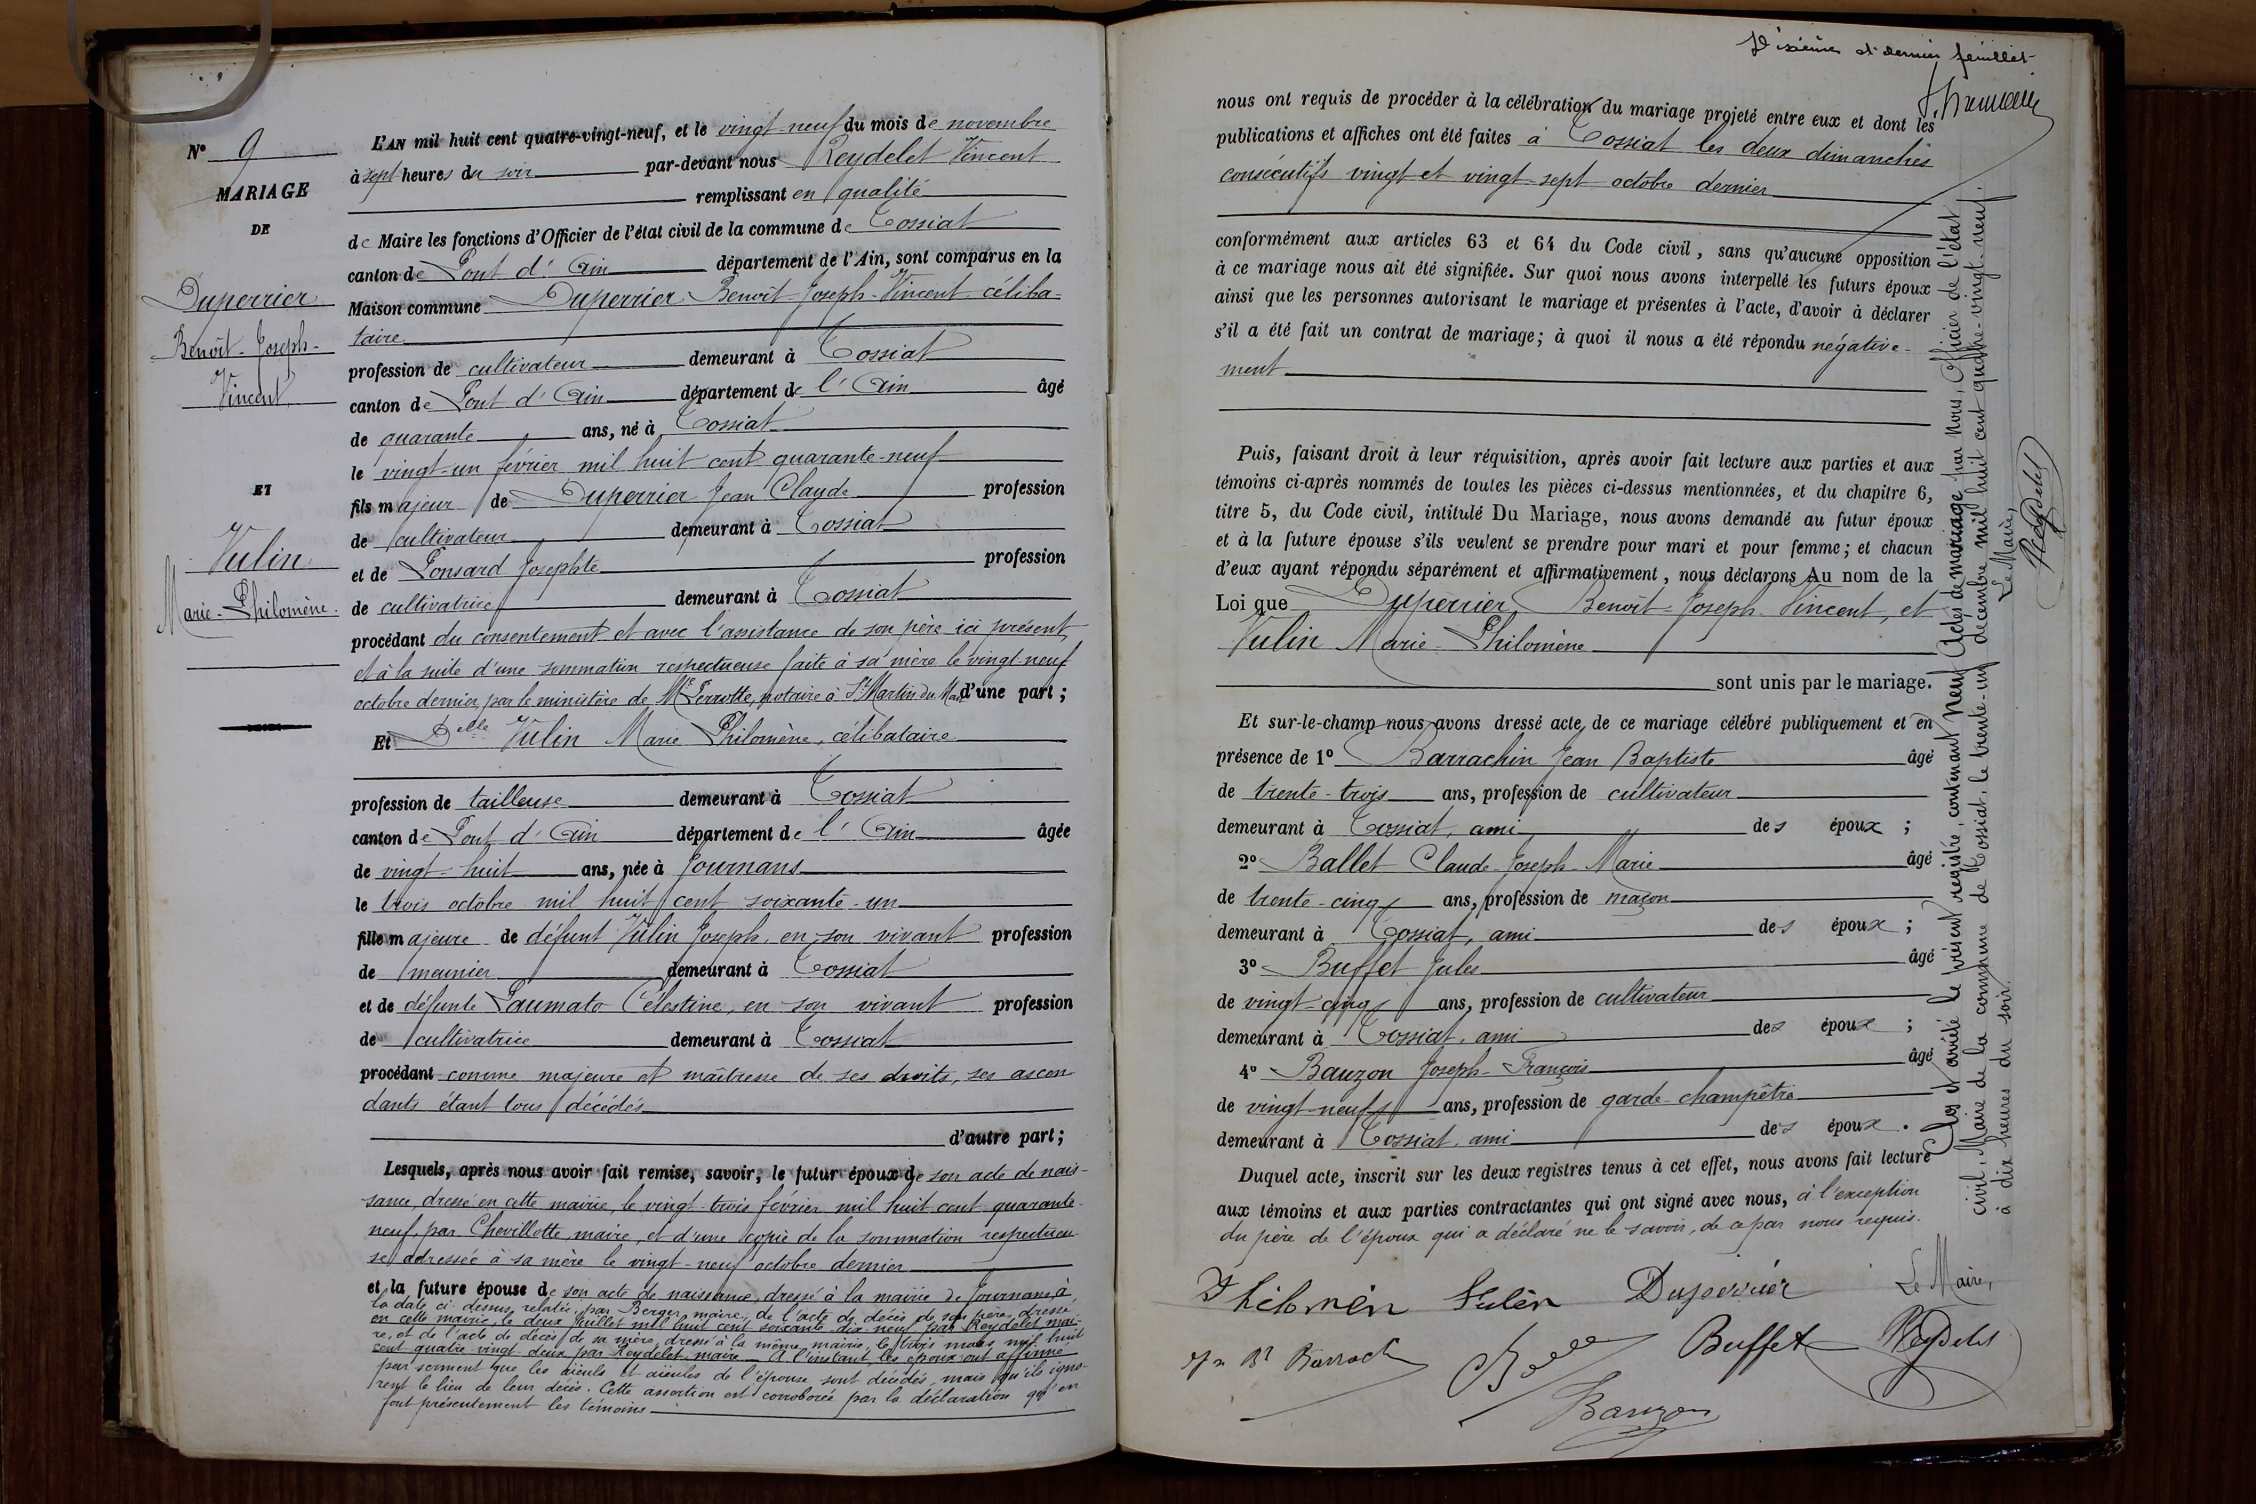 N° 9
MARIAGE
DE
Duperrier
Benoît-Joseph-
Vincent
ET
Vulin
Marie-Philomène.
L'AN mil huit cent quatre-vingt-neuf, et le vingt-neuf du mois de novembre
à sept heures du soir par-devant nous Reydelet Vincent
remplissant en qualité
de Maire les fonctions d'Officier de l'état civil de la commune de Tossiat
canton de Pont d'Ain département de l'Ain, sont comparus en la
Maison commune Duperrier Benoît-Joseph-Vincent céliba-
taire
profession de cultivateur demeurant à Tossiat
canton de Pont d'Ain département de l'Ain âgé
de quarante ans, né à Tossiat
le vingt-un février mil huit cent quarante-neuf
fils majeur de Duperrier Jean Claude profession
de cultivateur demeurant à Tossiat
et de Ponsard Josephte profession
de cultivatrice demeurant à Tossiat
procédant du consentement et avec l'assistance de son père ici présent
et à la suite d'une sommation respectueuse faite à sa mère le vingt-neuf
octobre dernier, par le ministère de Me Perrotte, notaire à St Martin du Mont d'une part ;
Et Delle Vulin Marie Philomène, célibataire
profession de tailleuse demeurant à Tossiat
canton de Pont d'Ain département de l'Ain âgée
de vingt-huit ans, née à Journans
le trois octobre mil huit cent soixante-un
fille majeure de défunt Vulin Joseph, en son vivant profession
de meunier demeurant à Tossiat
et de défunte Paumato Célestine, en son vivant profession
de cultivatrice demeurant à Tossiat
procédant comme majeure et maîtresse de ses droits, ses ascen-
dants étant tous décédés
d'autre part ;
Lesquels, après nous avoir fait remise, savoir, le futur époux de son acte de nais-
sance, dressé en cette mairie, le vingt-trois février mil huit cent quarante-
neuf, par Chevillotte, maire, et d'une copie de la sommation respectueu-
se adressée à sa mère le vingt-neuf octobre dernier
et la future épouse de son acte de naissance, dressé à la mairie de Journans, à
la date ci-dessus relatée, par Berger, maire, de l'acte de décès de son père, dressé
en cette mairie, le deux juillet mil huit cent soixante-dix-neuf par Reydelet mai-
re, et de l'acte de décès de sa mère, dressé à la même mairie, le trois mars mil huit
cent quatre vingt-deux par Reydelet, maire. A l'instant, les époux ont affirmé
par serment que les aïeuls et aïeules de l'épouse sont décédés, mais qu'ils igno-
rent le lieu de leur décès. Cette assertion est corroborée par la déclaration qu'en
font présentement les témoins
Dixième et dernier feuillet
nous ont requis de procéder à la célébration du mariage projeté entre eux et dont les
publications et affiches ont été faites à Tossiat les deux dimanches
consécutifs vingt et vingt-sept octobre dernier
conformément aux articles 63 et 64 du Code civil, sans qu'aucune opposition
à ce mariage nous ait été signifiée. Sur quoi nous avons interpellé les futurs époux
ainsi que les personnes autorisant le mariage et présentes à l'acte, d'avoir à déclarer
s'il a été fait un contrat de mariage ; à quoi il nous a été répondu négative-
ment
Puis, faisant droit à leur réquisition, après avoir fait lecture aux parties et aux
témoins ci-après nommés de toutes les pièces ci-dessus mentionnées, et du chapitre 6,
titre 5, du Code civil, intitulé Du Mariage, nous avons demandé au futur époux
et à la future épouse s'ils veulent se prendre pour mari et pour femme ; et chacun
d'eux ayant répondu séparément et affirmativement, nous déclarons Au nom de la
Loi que Duperrier Benoît-Joseph-Vincent, et
Vulin Marie-Philomène
sont unis par le mariage.
Et sur-le-champ nous avons dressé acte de ce mariage célébré publiquement et en
présence de 1° Barrachin Jean Baptiste âgé
de trente-trois ans, profession de cultivateur
demeurant à Tossiat, ami des époux ;
2° Ballet Claude-Joseph-Marie âgé
de trente-cinq ans, profession de maçon
demeurant à Tossiat, ami des époux ;
3° Buffet Jules âgé
de vingt-cinq ans, profession de cultivateur
demeurant à Tossiat, ami des époux ;
4° Bauzon Joseph-François âgé
de vingt-neuf ans, profession de garde-champêtre
demeurant à Tossiat, ami des époux.
Duquel acte, inscrit sur les deux registres tenus à cet effet, nous avons fait lecture
aux témoins et aux parties contractantes qui ont signé avec nous, à l'exception
du père de l'époux qui a déclaré ne le savoir, de ce par nous requis.
Philomèn Vulin Duperrier Le Maire,
Jn Bt Barrach Buffet Reydelet
Bauzon
Clos et arrêté le présent registre, contenant neuf Actes de mariage par Nous, Officier de l'état
civil, Maire de la commune de Tossiat, le trente-un décembre mil huit cent quatre-vingt-neuf.
à dix heures du soir.
Le Maire,
Reydelet